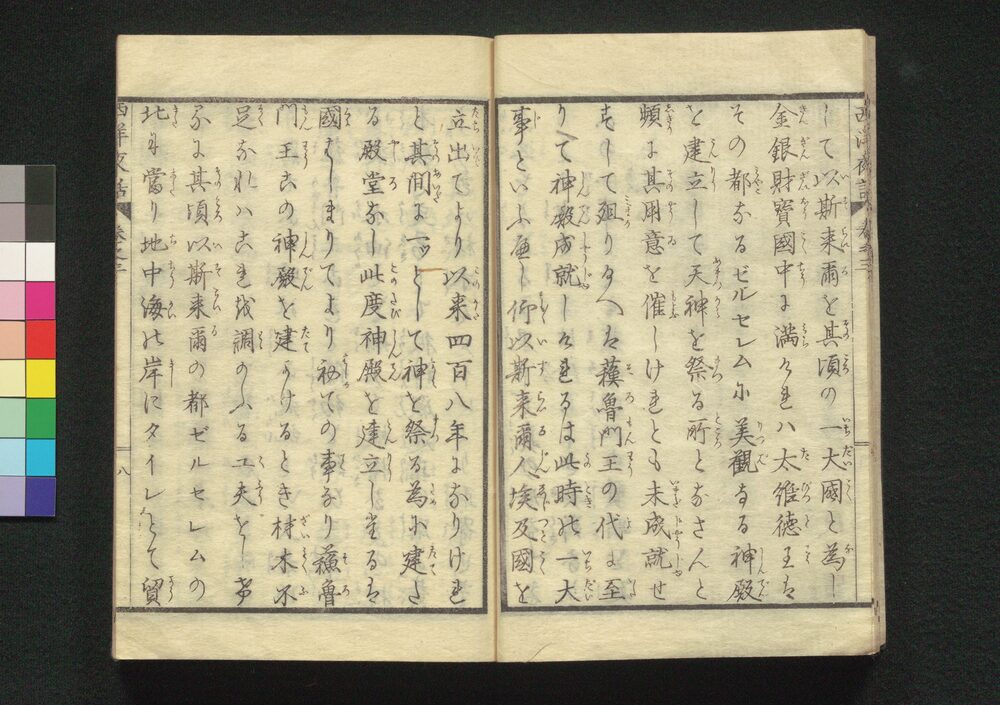 して以斯来爾を其頃の一大國と為し
金銀財寶國中に満けれハ太維徳王は
その都なるゼルセレムに美觀なる神殿
を建立して天神を祭る所となさんと
頻に其用意を催しけれとも未成就せ
すして廻りタヘは蘓魯門王の代に至
りて神殿成就しけれるは此時の一大
事といふ㢘し仰以斯来爾人埃及國を
立出てより以来四百八年になりけれ
と其間に一ツとして神を祭る為に建た
る殿堂なし此度神殿を建立し奉るは
國はしまりてより初ての事なり蘓魯
門王この神殿を建らけるとき材木不
足なれハこれを調のふる工夫をし
るに其頃以斯来爾の都ゼルセレムの
北に當り地中海の岸にタイレとて貿
西洋夜話 巻之二
八